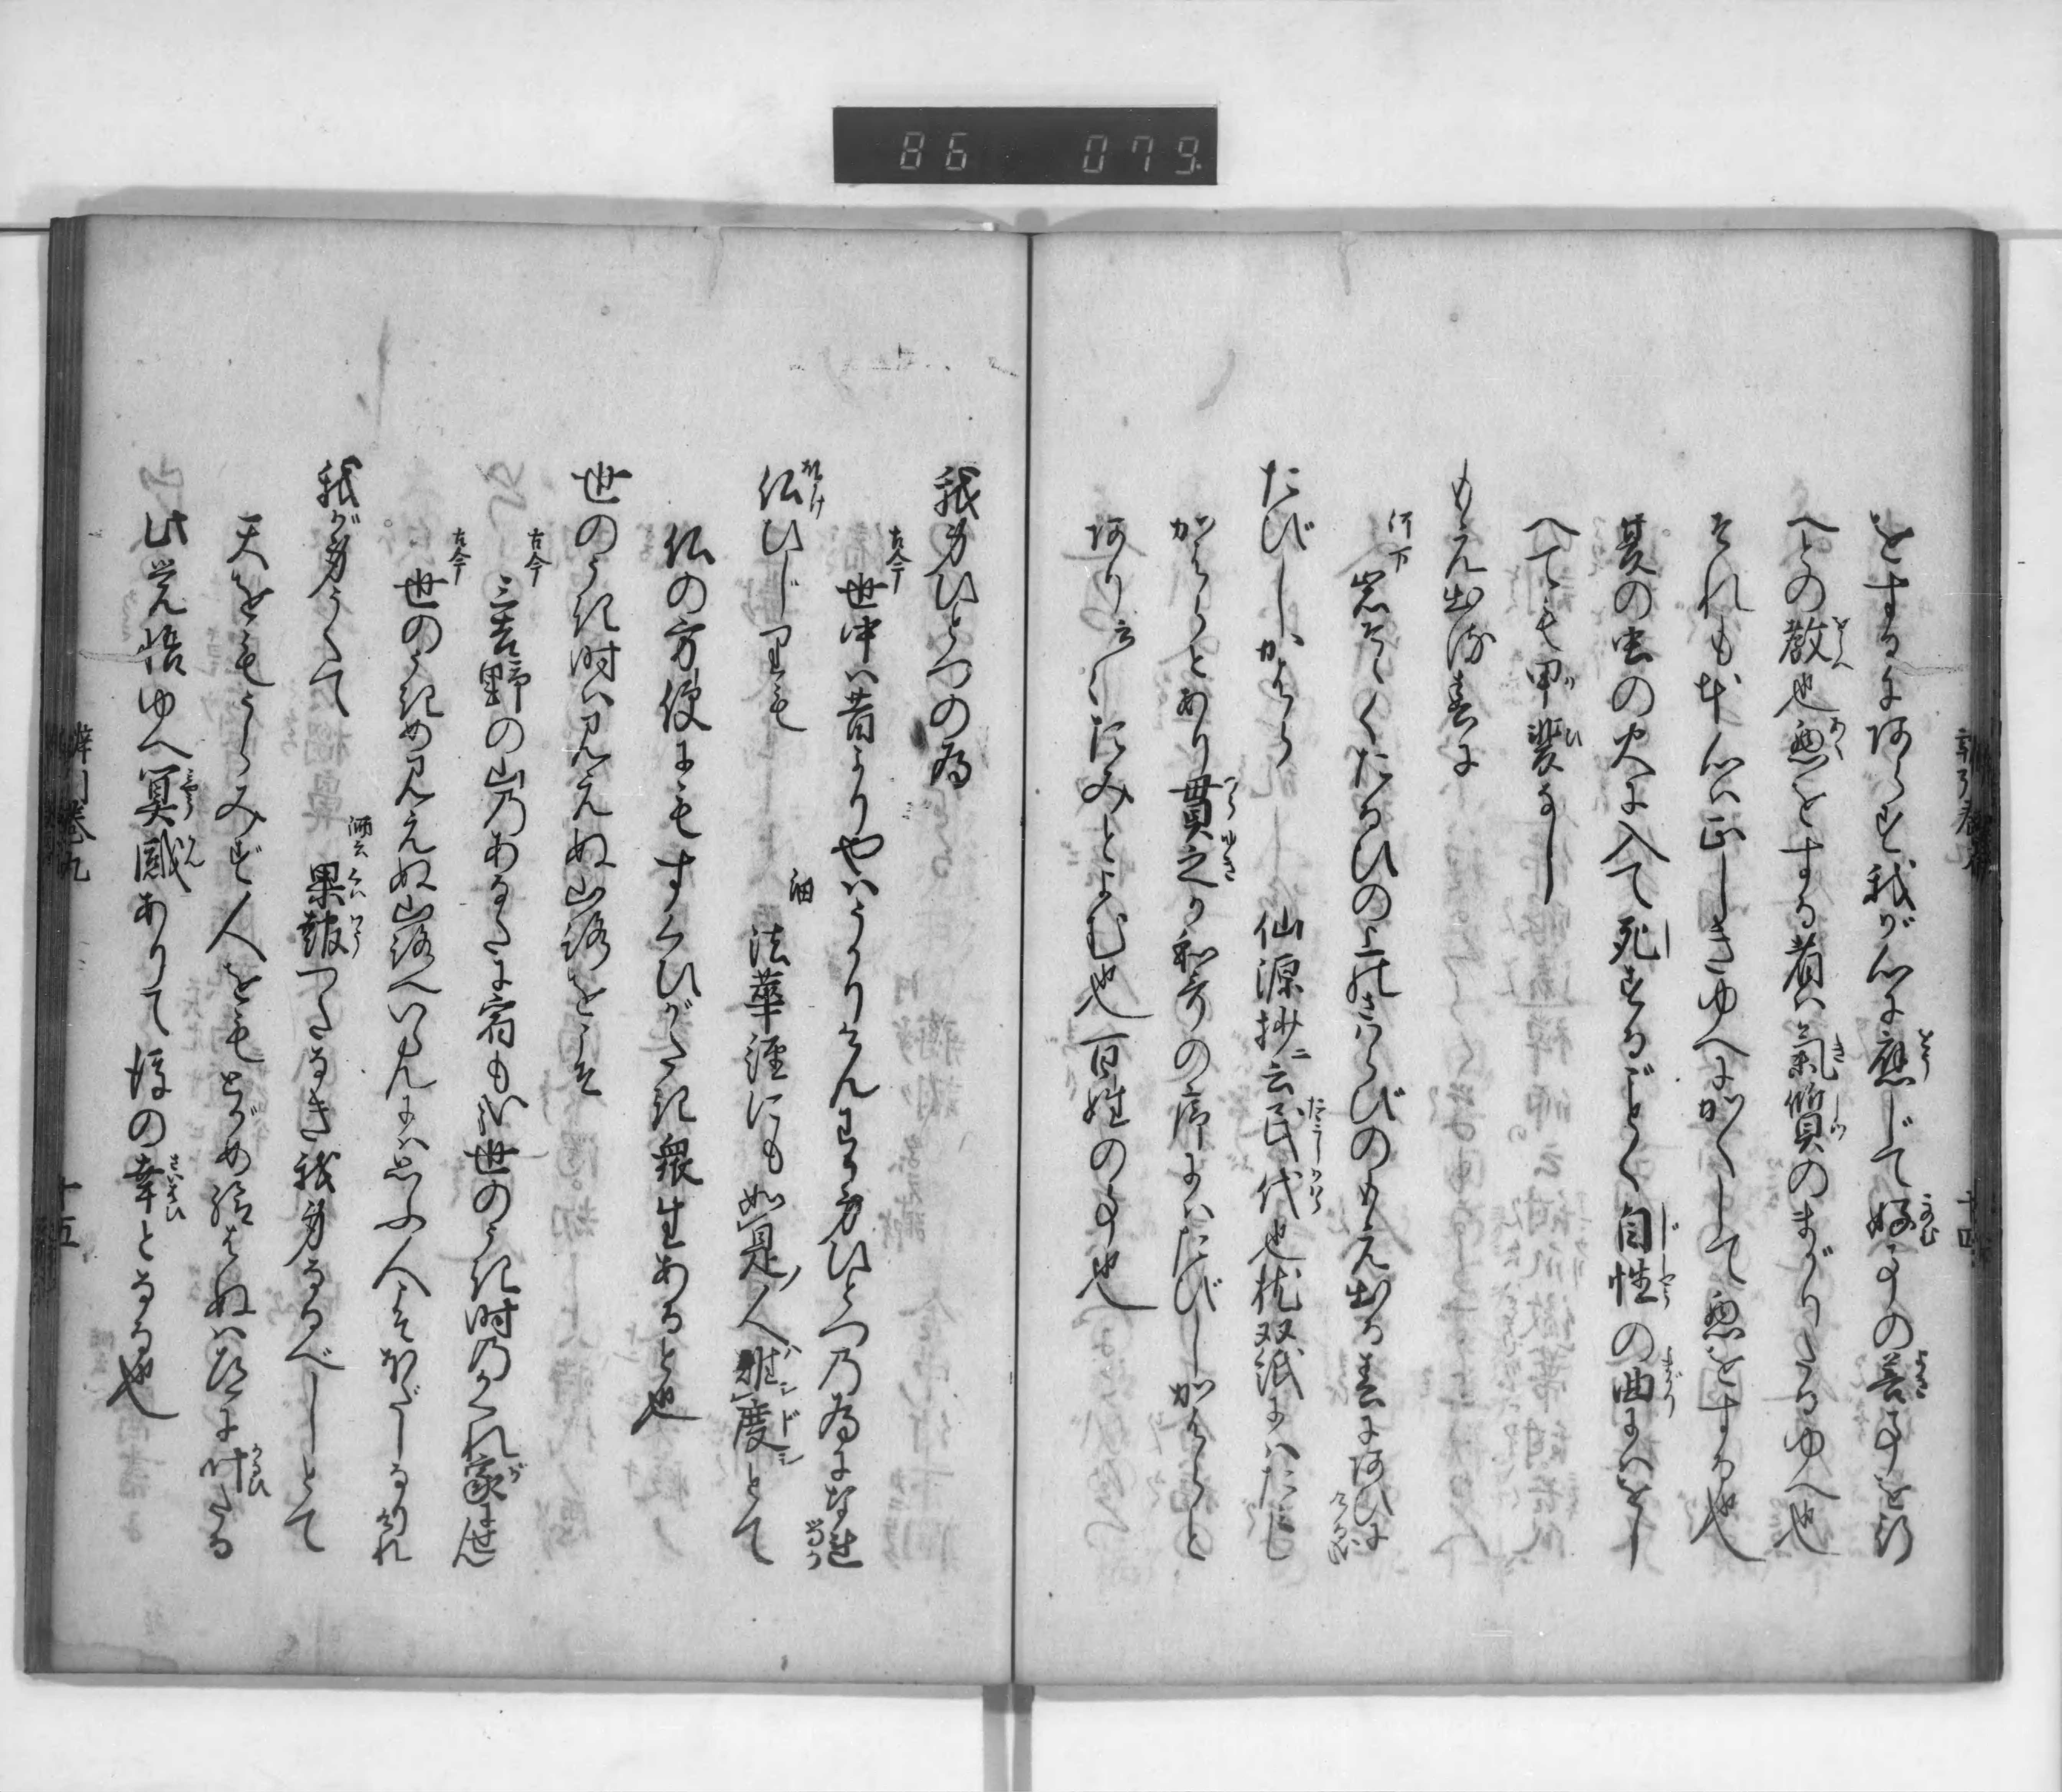 86 079
をするにあらず我が心に應じて好事の善事を行
への教也惡をする者は氣質のまがりたるゆへ也
それも本心は正しきゆへにかくして惡をする也
夏の虫の火に入て死するごとく自性の曲にはをし
へても甲斐なし
もえ出る春に
河下 岩そゝくたるひの上のさわらびのもえ出る春にあひに
けるかな
たびしかはら 仙源抄ニ云民代也枕双紙にはたミ
かはらとあり貫之が和哥の序にはたびしかはらと
ありこゝにたみとよむ也百姓の事也
我身ひとつの為
古今 世中は昔よりやはうかりけんわが身ひとつの為になれ
るか
仏ひじりも 細 法華經にも如是人難度とて
仏の方便にもすくひがたき衆生あると也
世のうき時は見えぬ山路をこそ
古今 三吉野の山のあなたに宿もが世のうき時のかくれ家にせん
古今 世のうきめ見えぬ山路へいらんには思ふ人こそほだしなりけれ
我が身うくて 師云 果報つたなき我身なるべしとて
天をもうらみず人をもとがめ給はぬは道に叶たる
此覚悟ゆへ冥感ありて後の幸となる也
卷九
十五